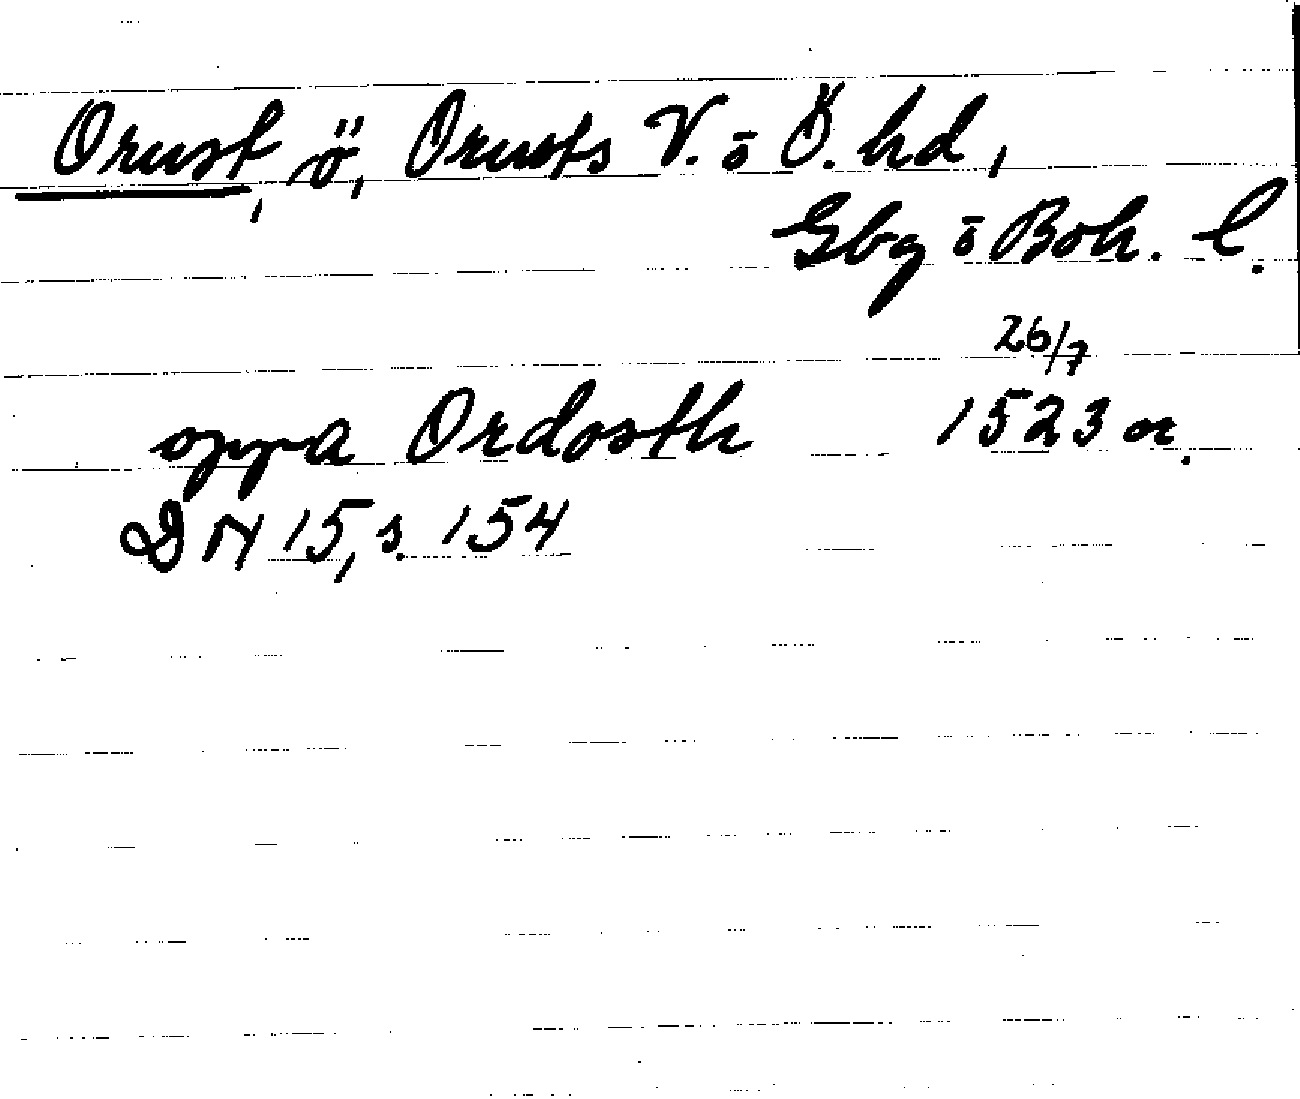 Orust, ö, Orusts V. o Ö. hd,
Gbg o Boh. l.
26/7
oppa Ordosth 1523 or.
DN 15, s. 154